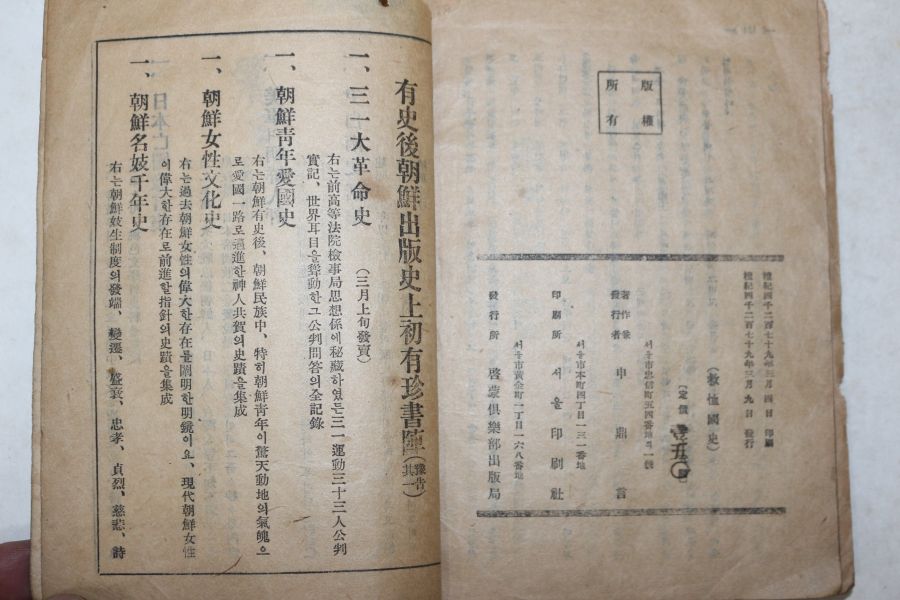 版權
所有
檀紀四千二百七十九年三月四日 印刷
檀紀四千二百七十九年三月九日 發行
國史
(定價
서울市忠信町五四番地의一號
著作兼
發行者 申鼎言
서울市本町四丁目一三一番地
印刷所 서울印刷社
서울市黃金町一丁目一六八番地
發行所 啓蒙俱樂部出版局
有史後朝鮮出版史上初有珍書陣(豫告其一)
一、三一大革命史 (三月上旬發賣)
右는前高等法院檢事局思想係에秘藏하였든三一運動三十三人公判
實記、世界耳目을聳動한그公判問答의全記錄
一、朝鮮靑年愛國史
右는朝鮮有史後、朝鮮民族中、特히朝鮮靑年이驚天動地의氣魄으
로愛國一路로邁進한神人共賀의史蹟을集成
一、朝鮮女性文化史
右는過去朝鮮女性의偉大한存在를闡明한明鏡이오、現代朝鮮女性
이偉大한存在로前進할指針의史蹟을集成
一、朝鮮名妓千年史
右는朝鮮妓生制度의發端、變遷、盛衰、忠孝、貞烈、慈悲、詩